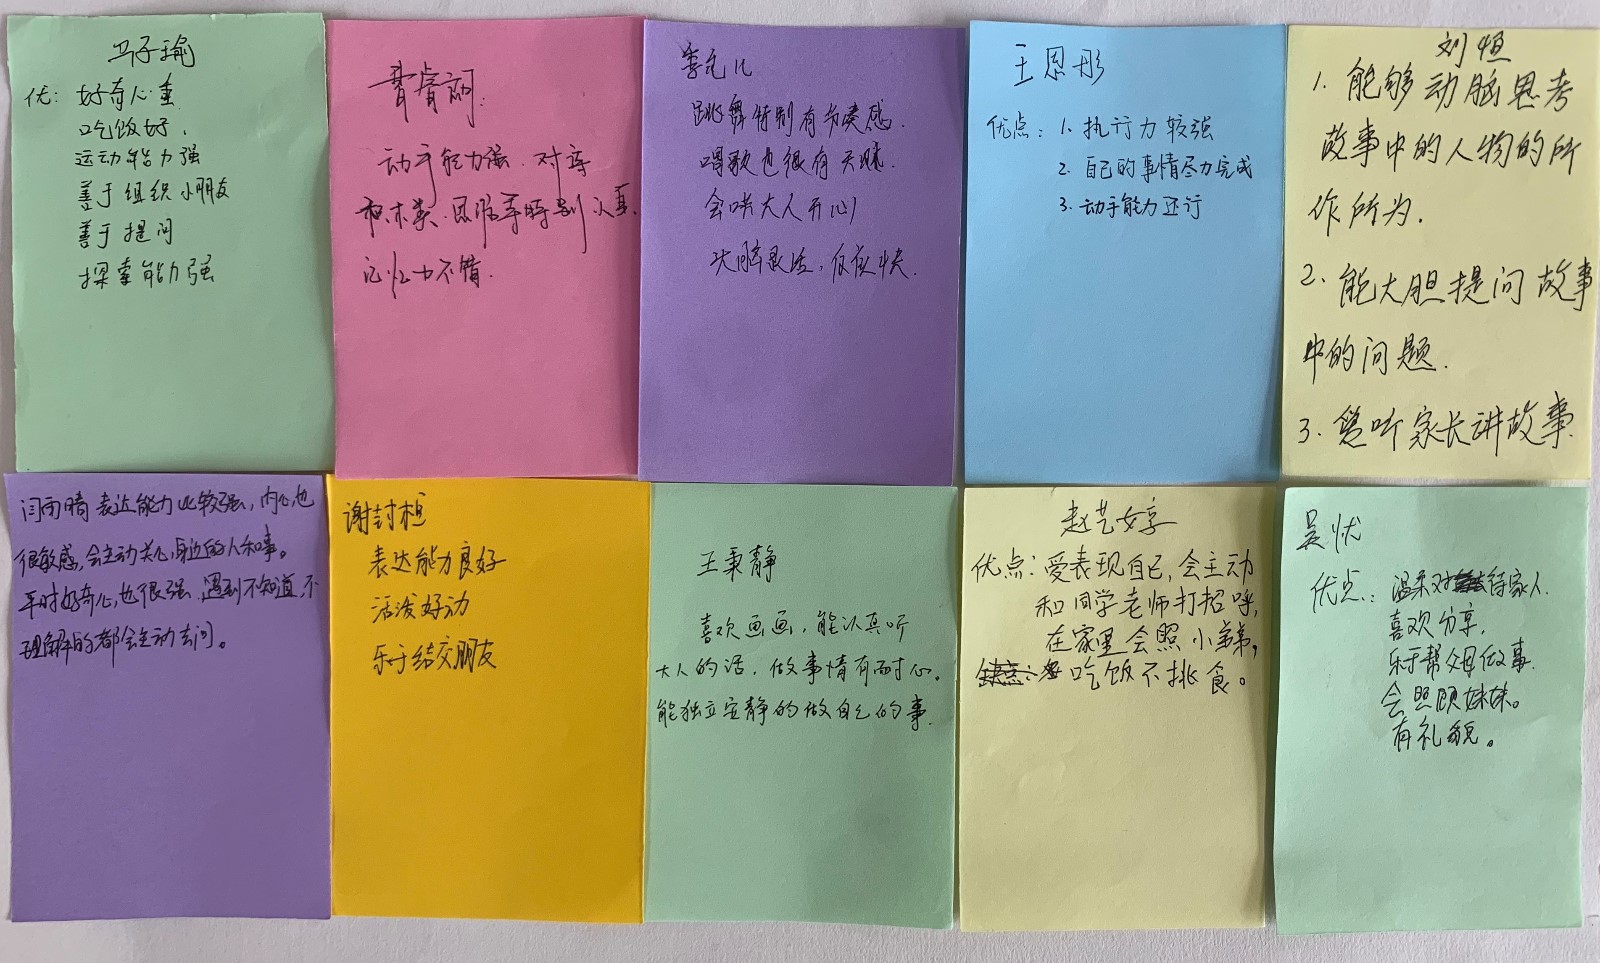 马子瑜
优: 好奇心重
吃饭好.
运动能力强
善于组织小朋友
善于提问
探索能力强
动手能力强. 对
积木类.
记忆力不错.
季
跳舞特别有节奏感.
唱歌也很有天赋.
会哄大人开心
大脑灵活, 反应快.
王恩彤
优点: 1. 执行力较强
2. 自己的事情尽力完成
3. 动手能力还行
刘恒
1. 能够动脑思考
故事中的人物的所
作所为.
2. 能大胆提问故事
中的问题.
3. 爱听家长讲故事.
闫雨晴 表达能力比较强, 内心也
很敏感, 会主动关心身边的人和事。
平时好奇心也很强, 遇到不知道, 不
理解的都会主动去问。
谢封桓
表达能力良好
活泼好动
乐于结交朋友
王秉静
喜欢画画, 能认真听
大人的话, 做事情有耐心。
能独立安静的做自己的事.
赵艺婷
优点: 爱表现自己, 会主动
和同学老师打招呼,
在家里会照小弟弟,
吃饭不挑食。
吴忧
优点: 温柔对待家人.
喜欢分享.
乐于帮父母做事.
会照顾妹妹。
有礼貌。